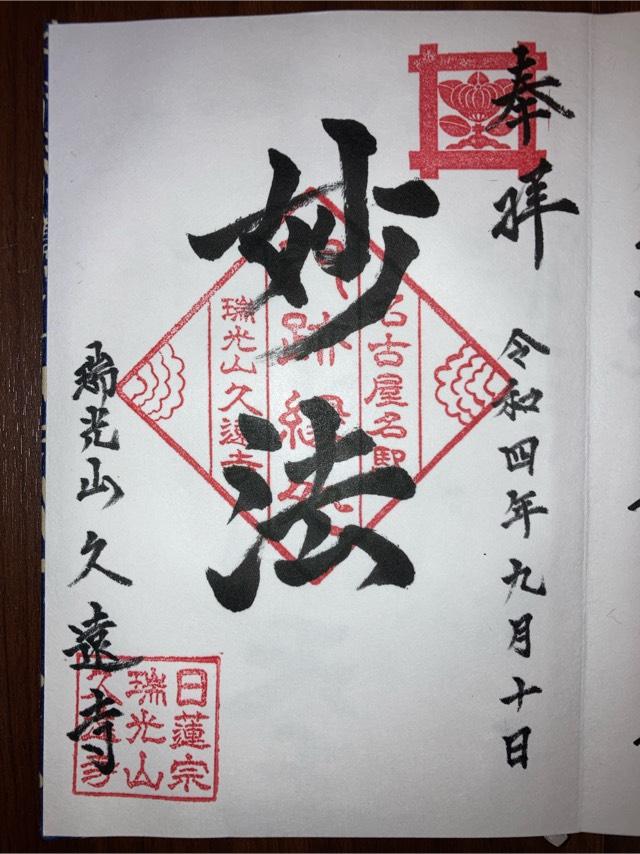 奉拝
令和四年九月十日
妙法
名古屋名駅
跡
瑞光山久遠寺
瑞光山久遠寺
日蓮宗
瑞光山
久遠寺